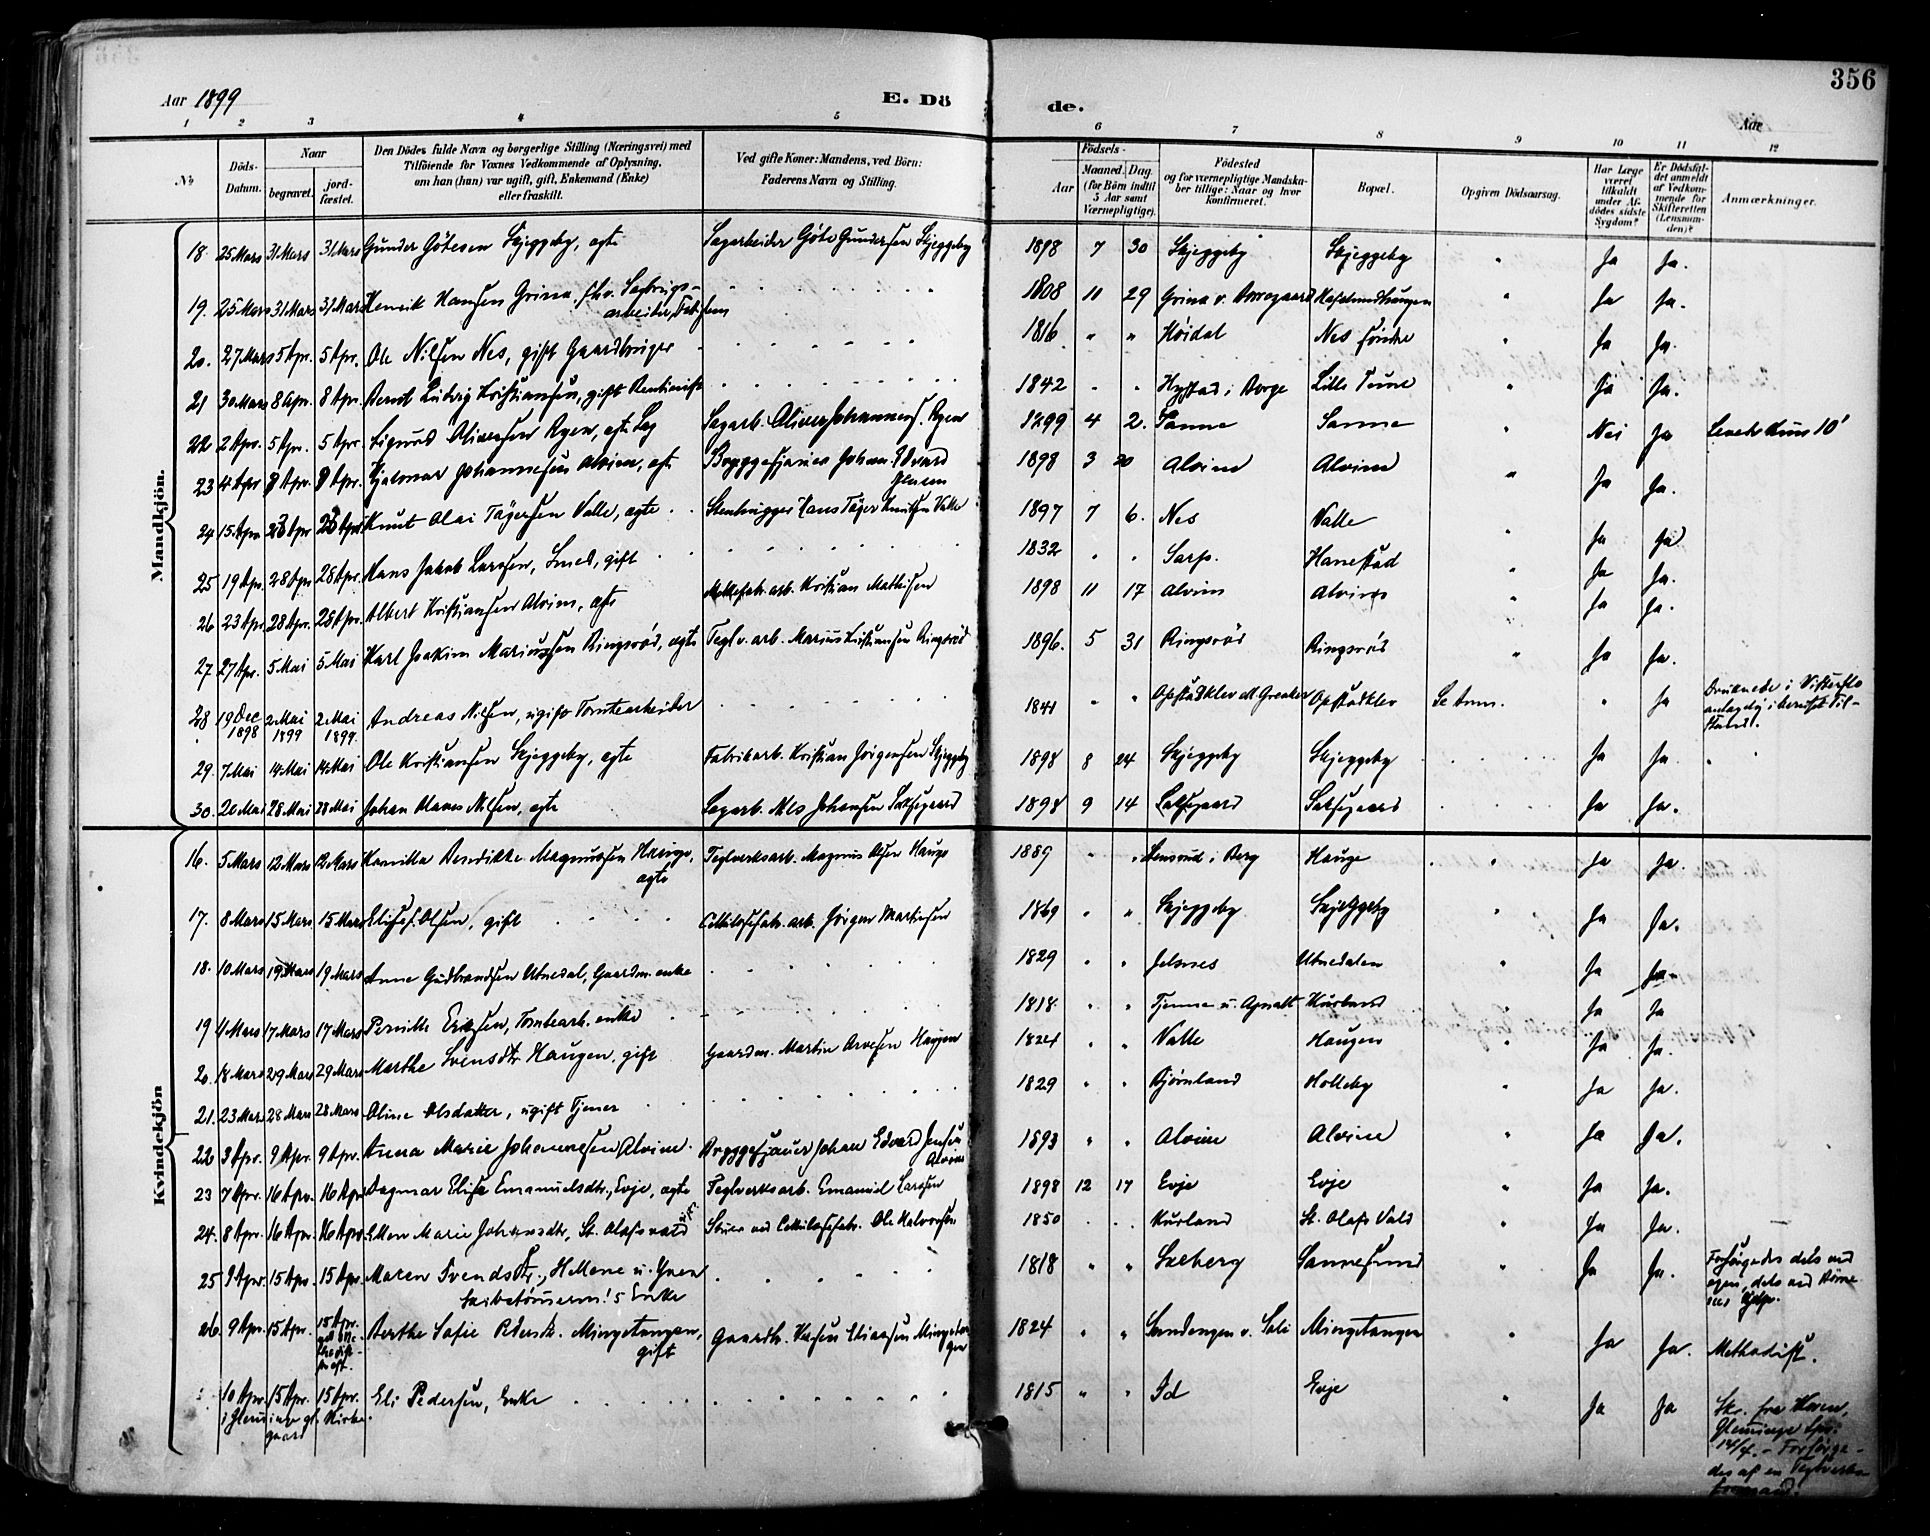 356
Aar 1899
E. Döde.
Aar
1 2 3 4 5 6 7 8 9 10 11 12
No
Döds-Datum.
Naar
begravet.
jordfæstet.
Den Dödes fulde Navn og borgerlige Stilling (Næringsvei) med
Tilföiende for Voxnes Vedkommende af Oplysning,
om han (hun) var ugift, gift, Enkemand (Enke)
eller fraskilt.
Ved gifte Koner: Mandens, ved Börn:
Faderens Navn og Stilling.
Födsels-
Aar
Maaned. Dag.
(for Börn indtil
5 Aar samt
Værnepligtige).
Födested
og for værnepligtige Mandskaber tillige: Naar og hvor
Konfirmeret.
Bopæl.
Opgiven Dödsaarsag.
Har Læge
været
tilkaldt
under Afdödes sidste
Sygdom?
Er Dödsfaldet anmeldt
af Vedkommende for
Skifteretten
(Lensmanden)?
Anmærkninger.
Mandkjön.
18. 25 Mars 31 Mars 31 Mars Gunder Götesen Skjeggeby, ægte Sagarbeider Göte Gundersen Skjeggeby 1898 7 30 Skjeggeby Skjeggeby " Ja Ja.
19. 25 Mars 31 Mars 31 Mars Henrik Hansen Grina, fhv. Sagbrugsarbeider, 1808 11 29 Grina v. Borregaard " Ja Ja.
20. 27 Mars 5 Apr. 5 Apr. Ole Nilsen Nes, gift Gaardbruger 1816 " " Höidal Nes söndre " Ja Ja.
21 30 Mars 8 Apr. 8 Apr. Bernt Ludvig Kristiansen, gift Rentenist 1842 " " i Borge Lille Tune " Ja Ja.
22 2 Apr. 5 Apr. 5 Apr. Sigurd Oliversen Ryen, Sagarb. Oliver Johanness. Ryen 1899 4 2. Sanne Sanne " Nei Ja Levede kun 10'
23 4 Apr 8 Apr. 8 Apr. Hjalmar Johannesen Alvim, Bryggesjauer Johan Edvard Jensen 1898 3 20 Alvim Alvim " Ja Ja.
24 15 Apr. 23 Apr 23 Apr Knut Olai Tögersen Valle, ægte Stenhugger Hans Töger Knutsen Valle 1897 7 6. Nes Valle " Ja Ja
25 19 Apr. 28 Apr 28 Apr. Hans Jakob Larssen, Smed, gift 1832 " " Sarp. Hanestad " Ja Ja.
26 23 Apr. 28 Apr. 28 Apr. Albert Kristiansen Alvim, ægte arb. Kristian Mathisen 1898 11 17 Alvim Alvim " Ja Ja.
27 27 Apr. 5 Mai 5 Mai Karl Joakim Mariussen Ringsröd, ægte Teglv. arb. Marius Kristiansen Ringsröd 1896. 5 31 Ringsröd Ringsröd " Ja Ja.
28 19 Dec 1898 2 Mai 1899 2 Mai 1899. Andreas Nilsen, ugift Tomtearbeider 1841 " " Opstadklev Opstadklev Se Anm. " Ja Druknede i Visterflo
antagelig i beruset Tilstand.
29. 7 Mai 14 Mai 14 Mai Ole Kristiansen Skjeggeby, ægte Fabrikarb. Kristian Jörgensen Skjeggeby 1898 8 24 Skjeggeby Skjeggeby Ja Ja
30. 20 Mai 28 Mai 28 Mai Johan Olaves Nilsen, ægte Sagarb. Nils Johansen 1898 9 14 Ja Ja.
Kvindekjön
16. 5 Mars 12 Mars 12 Mars Kamilla Bendikke Magnussen Hauge, ægte Teglverksarb. Magnus Olsen Hauge 1889 " " i Berg Hauge " Ja Ja.
17. 8 Mars 15 Mars 15 Mars Olsen, gift Cellulosefabr. arb. Jörgen Martinsen 1869 " " Skjeggeby Skjeggeby " Ja Ja.
18. 10 Mars 19 Mars 19 Mars Anne Gudbrandsen Utnedal, Gaardm. enke 1829 " " Jelsnes Utnedalen " Ja Ja.
19 Mars 17 Mars 17 Mars Pernille Eriksen, Tomtearb. enke 1818 " " Kurland Ja Ja
20. 18 Mars 29 Mars 29 Mars Marthe Svensdtr Haugen, gift Gaardm. Martin Arvesen Haugen 1824 " " Valle Haugen " Ja Ja.
21. 23 Mars 28 Mars 28 Mars Oline Olsdatter, ugift Tjener 1829 " " Björnland Holleby " Ja Ja.
22 3 Apr. 9 Apr. 9 Apr. Anna Marie Johannesen Alvim. Bryggesjauer Johan Edvard Jensen Alvim 1893 " " Alvim Alvim " Ja Ja.
23 7 Apr. 16 Apr. 16 Apr Dagmar Elise Emanuelsdtr., Evje, ægte Teglverksarb. Emanuel Larssen 1898 12 17 Evje Evje " Ja Ja.
24. 8 Apr. 16 Apr. 16 Apr. Ellen Marie Johansdtr, St. Olafs vold Cellulosefabr. Ole Halvorsen 1850 Kurland St. Olafs Vold " Ja Ja.
25 9 Apr. 15 Apr. 15 Apr. Maren Svendsdtr., Enke 1818 " " Solberg Sannesund " Ja Ja. Forsörgedes dels ved
egen, dels ved Börnenes Hjelp.
26 9 Apr. 15 Apr. 15 Apr. Berthe Sofie Petersdtr. Mingetangen, gift Gaardb. 1824 " " Sandengen v. Soli Mingetangen " Ja Ja. Methodist.
10 Apr. 15 Apr. 15 Apr. Eli Pedersen, Enke 1815 " " Id Evje " Ja Ja
i Glemminge gl. Kirkegaard
14/4. - Forsörgedes af en Teglverks